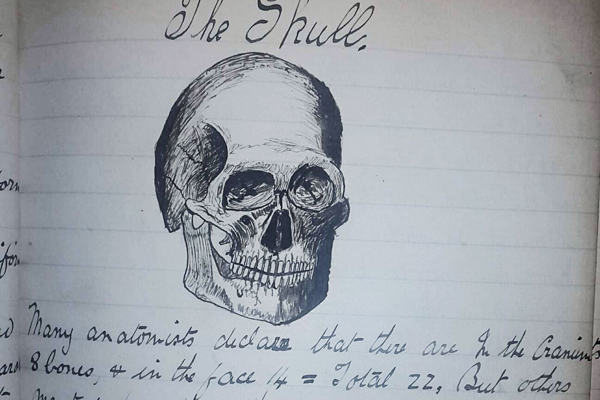 The Skull.
Many anatomists declare that there are In the Cranium
8 bones, & in the face 14 = Total 22, But others